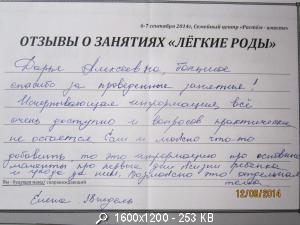 6-7 сентября 2014г, Семейный центр «Растём - вместе»
ОТЗЫВЫ О ЗАНЯТИЯХ «ЛЁГКИЕ РОДЫ»
Дарья Алексеевна, большое
спасибо за проведенные занятия!
Исчерпывающая информация, всё
очень доступно и вопросов практически
не остается. Если и можно что-то
добавить, то это информацию про основные
моменты про первые дни жизни ребенка
и ухода за ним. Возможно это отдельная
тема
Вы - будущая мама/
Елена
12/09/2014
1600x1200 - 253 KB